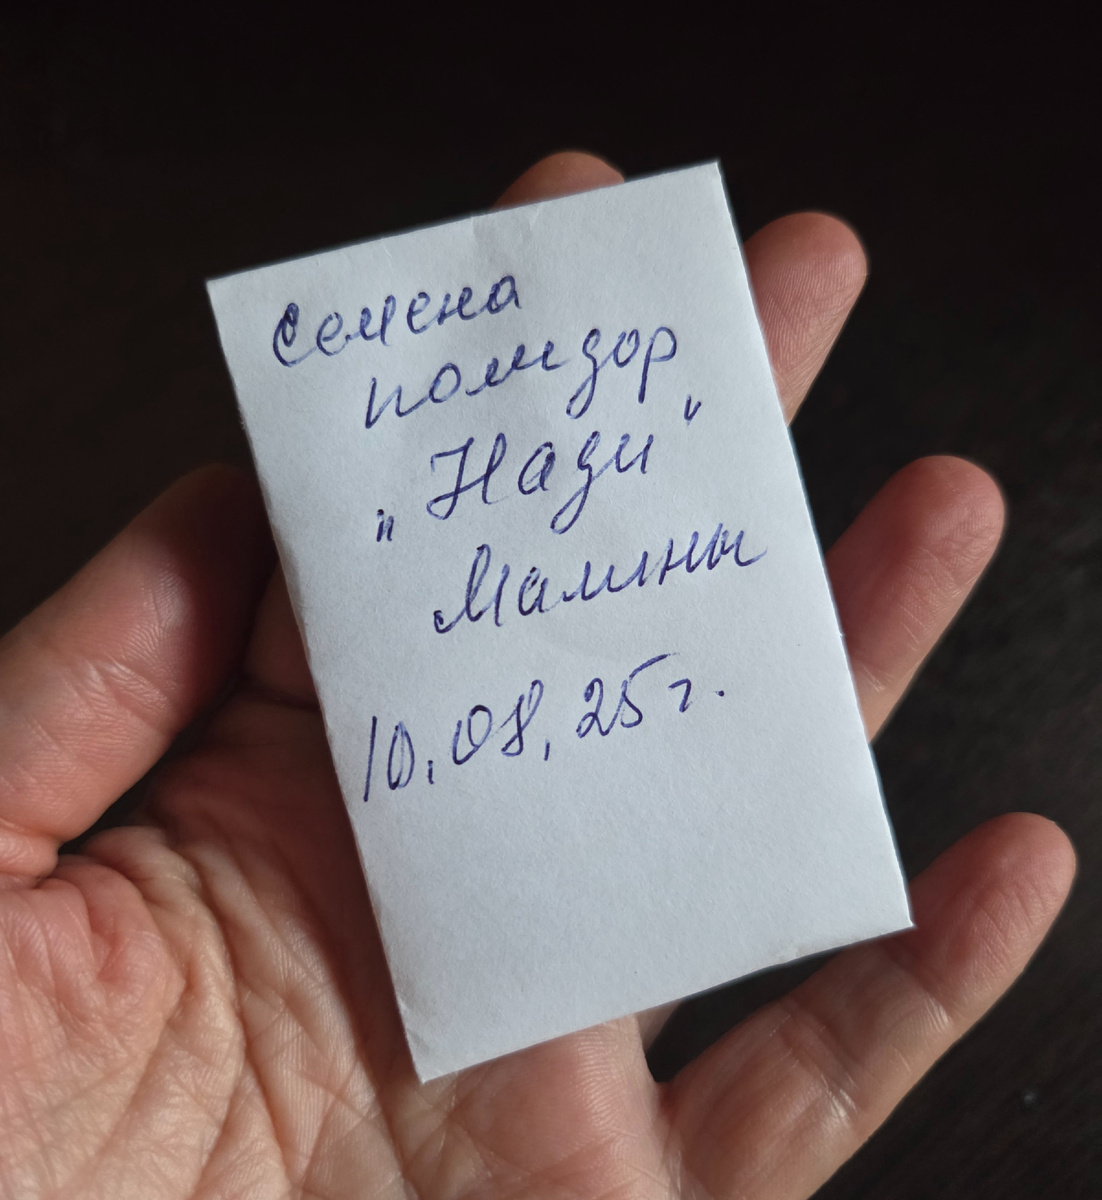 Семена
помидор
„Нади"
Мамины
10.08.25 г.